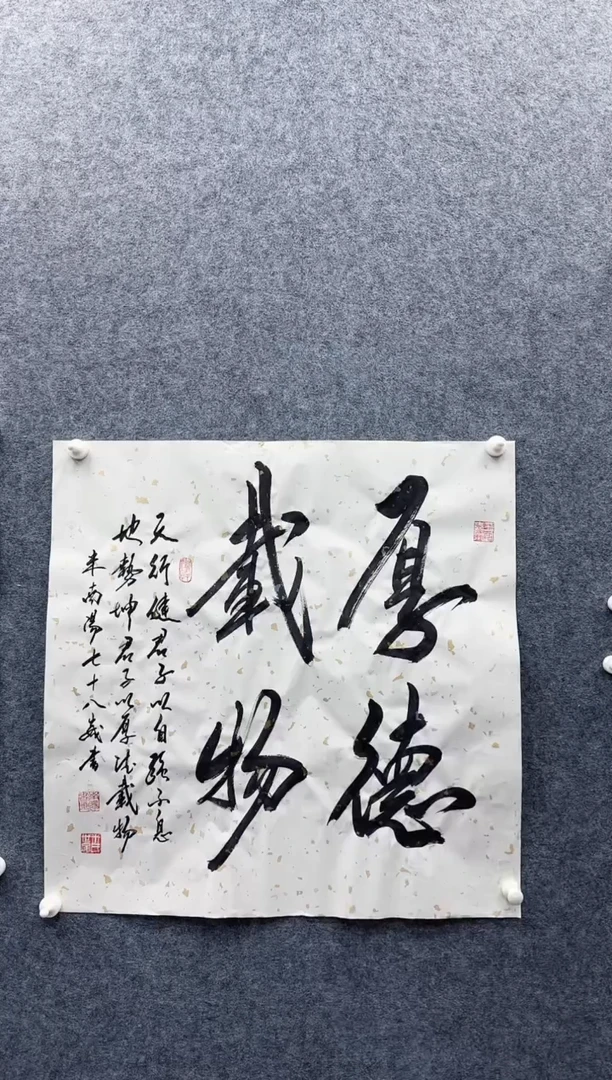 厚德
載物
天行健君子以自強不息
地勢坤君子以厚德載物
南陽七十八歲書